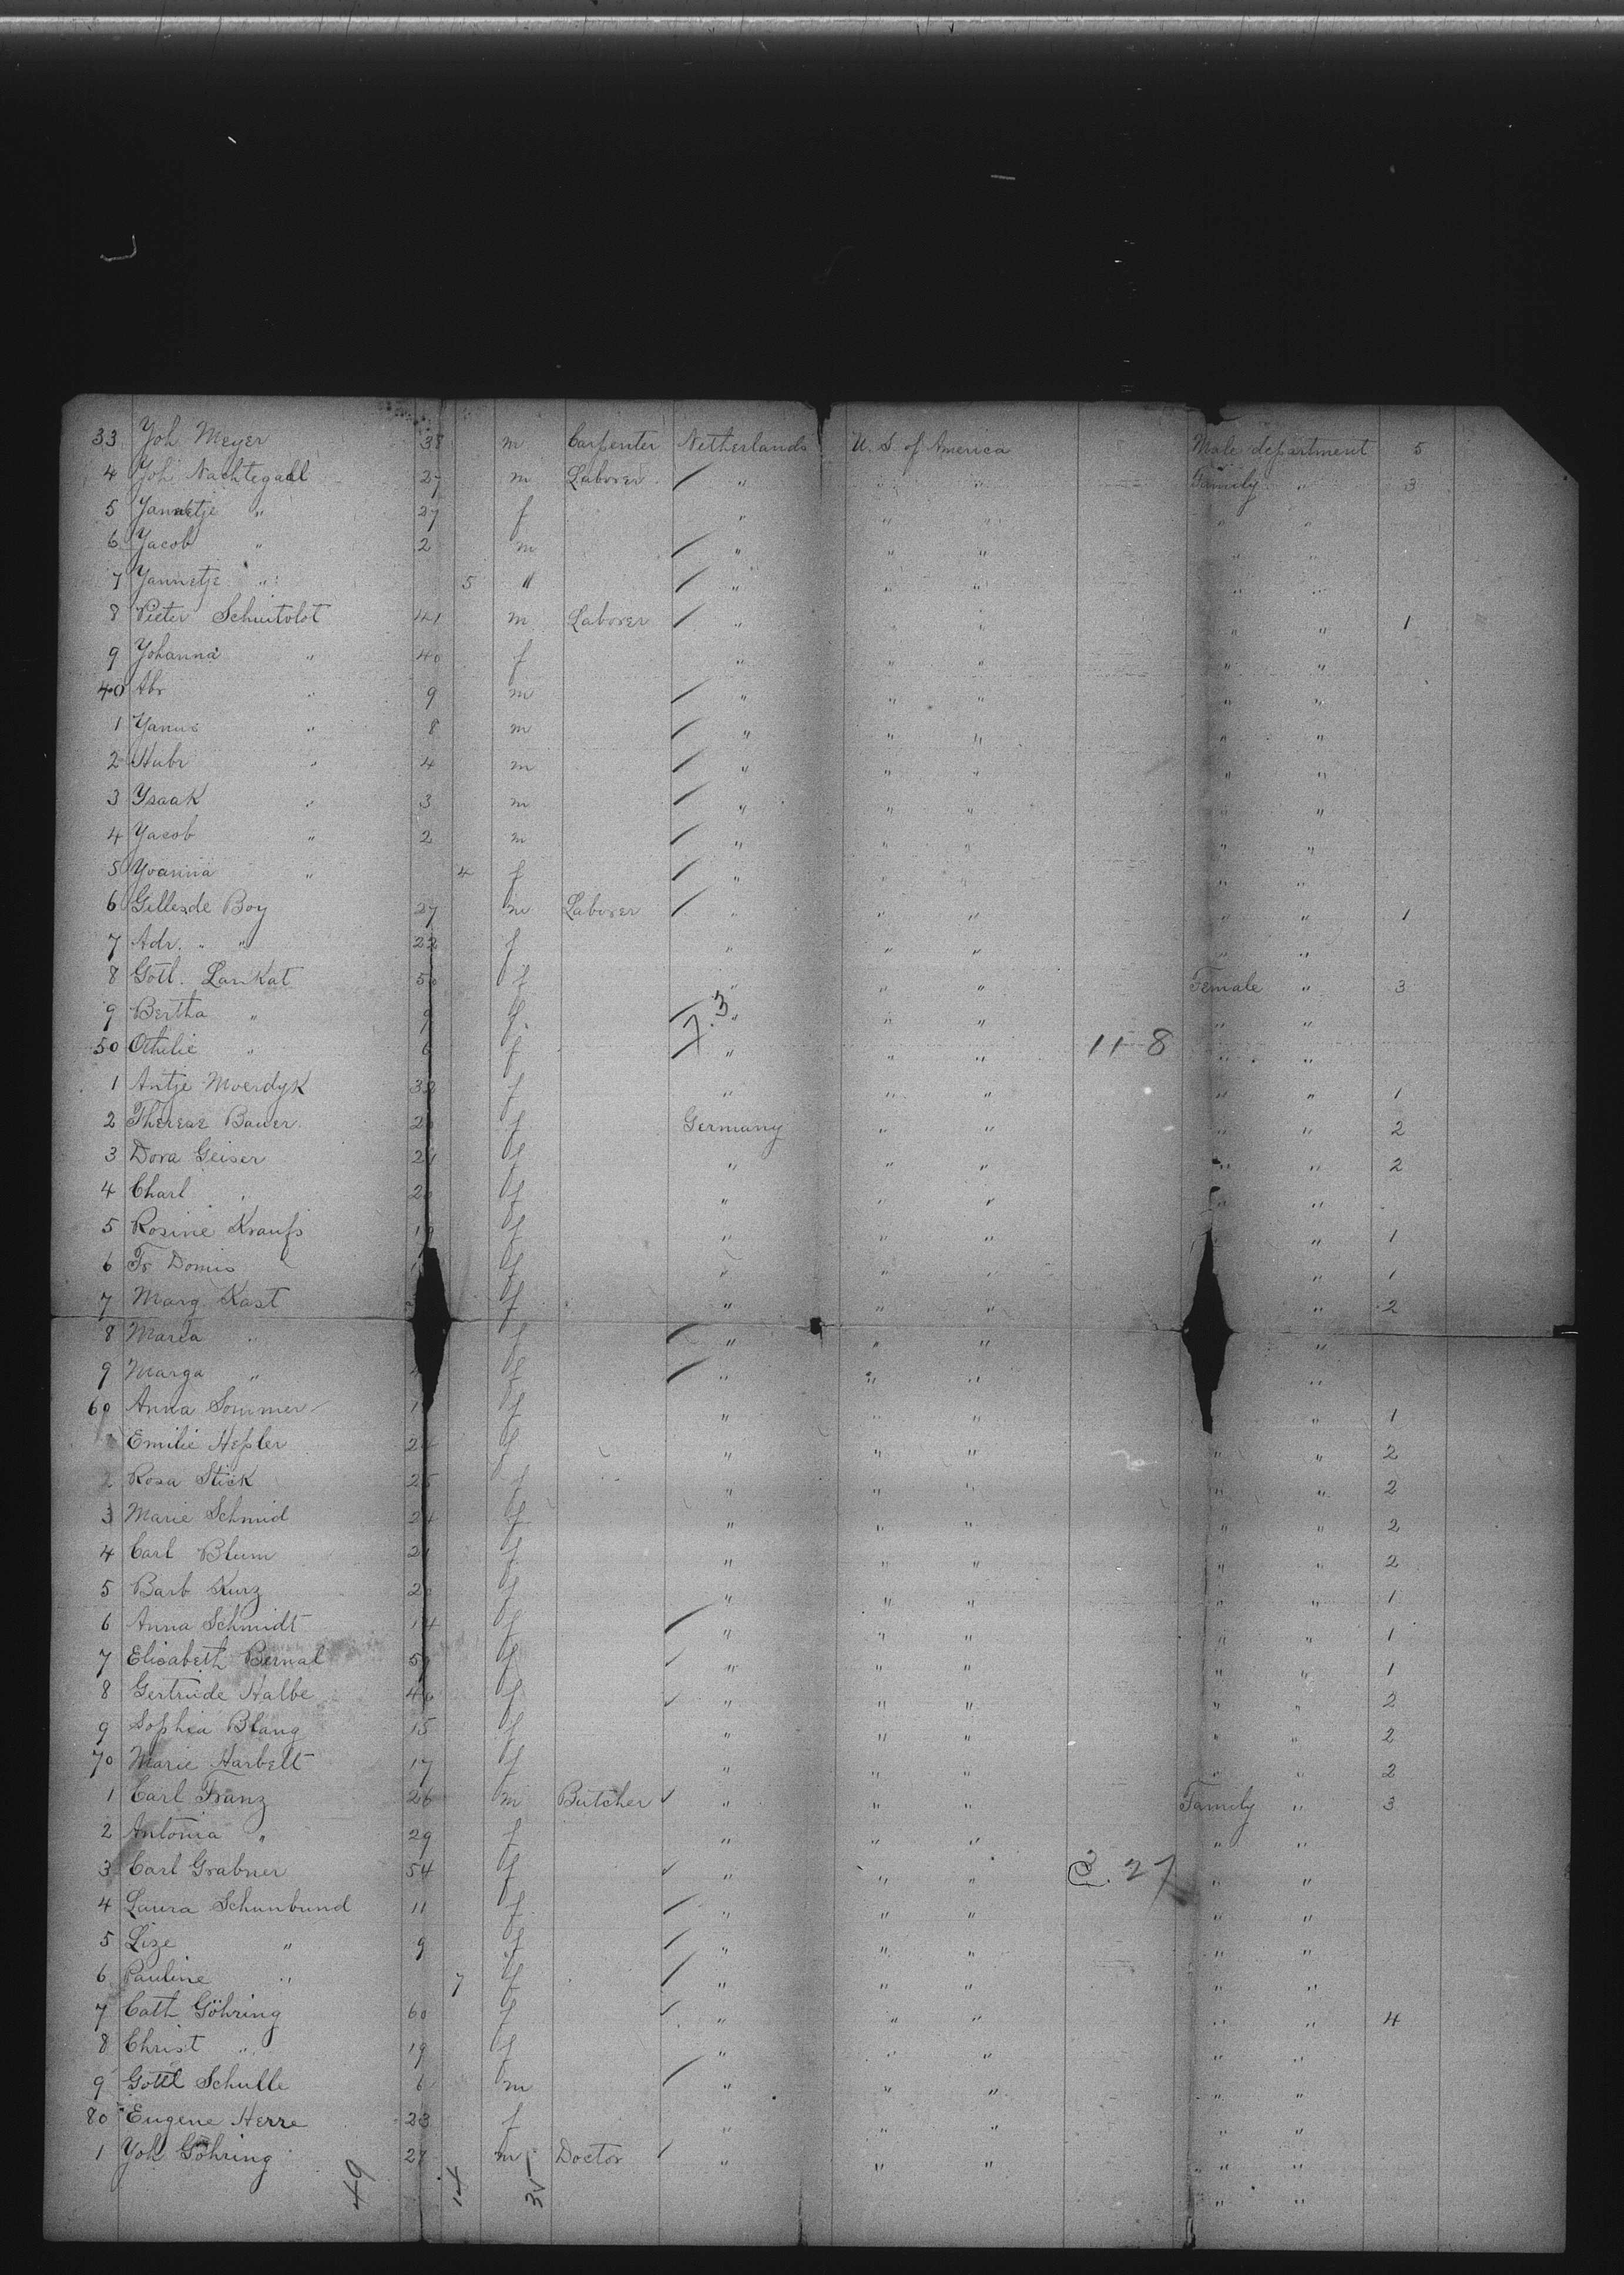 33 Yoh Meyer 38 m Carpenter Netherlands U. S. of America Male department 5
4 Yoh Nachtegaal 27 m Laborer " " " Family " 3
5 Jannetje " 27 f " " " " "
6 Yacob " 2 m " " " " "
7 Yannetje " 5 " " " " " "
8 Pieter Schuitvlot 41 m Laborer " " " " " 1
9 Yohanna " 40 f " " " " "
40 Abr " 9 m " " " " "
1 Yanus " 8 m " " " " "
2 Hubr " 4 m " " " " "
3 Ysaak " 3 m " " " " "
4 Yacob " 2 m " " " " "
5 Yvanna " 4 f " " " " "
6 Gilles de Boy 27 m Laborer " " " " " 1
7 Adr. " " 22 f " " " " "
8 Gotl. Lankat 50 f " " " Female " 3
9 Bertha " 9 f. 7.3 " " " " "
50 Othilie " 6 f " " " 11-8 " "
1 Antje Moerdyk 32 f " " " " " 1
2 Therese Bauer f Germany " " " " 2
3 Dora Geiser f " " " " " 2
4 Charl " f " " " " "
5 Rosine Kraufs f " " " " 1
6 Fr Domis f " " " " 1
7 Marg Kast f " " " " 2
8 Maria " f " " " "
9 Marga " f " " " "
60 Anna Sommer f " " " " 1
Emilie Hefsler 24 f " " " " " 2
2 Rosa Stick 25 f " " " " " 2
3 Marie Schmid 24 f " " " " " 2
4 Carl Blum 21 f " " " " " 2
5 Barb Kurz f " " " " " 1
6 Anna Schmidt 14 f " " " " " 1
7 Elisabeth Bernal f " " " " " 1
8 Gertrude Nalbe f " " " " " 2
9 Sophia Blang 15 f " " " " " 2
70 Marie Harbelt 17 f " " " " " 2
1 Carl Franz 26 m Butcher " " " Family " 3
2 Antonia " 29 f " " " " "
3 Carl Grabner 54 f " " " C. 27 " "
4 Laura Schunbund 11 f " " " " "
5 Lize " 9 f " " " " "
6 Pauline " 7 f " " " " "
7 Cath Göhring 60 f " " " " " 4
8 Christ " 19 f " " " " "
9 Gottl Schulle 6 m " " " " "
80 Eugene Herre 23 f " " " " "
1 Yoh Göhring 27 m Doctor " " " " "
" "
49 14 35